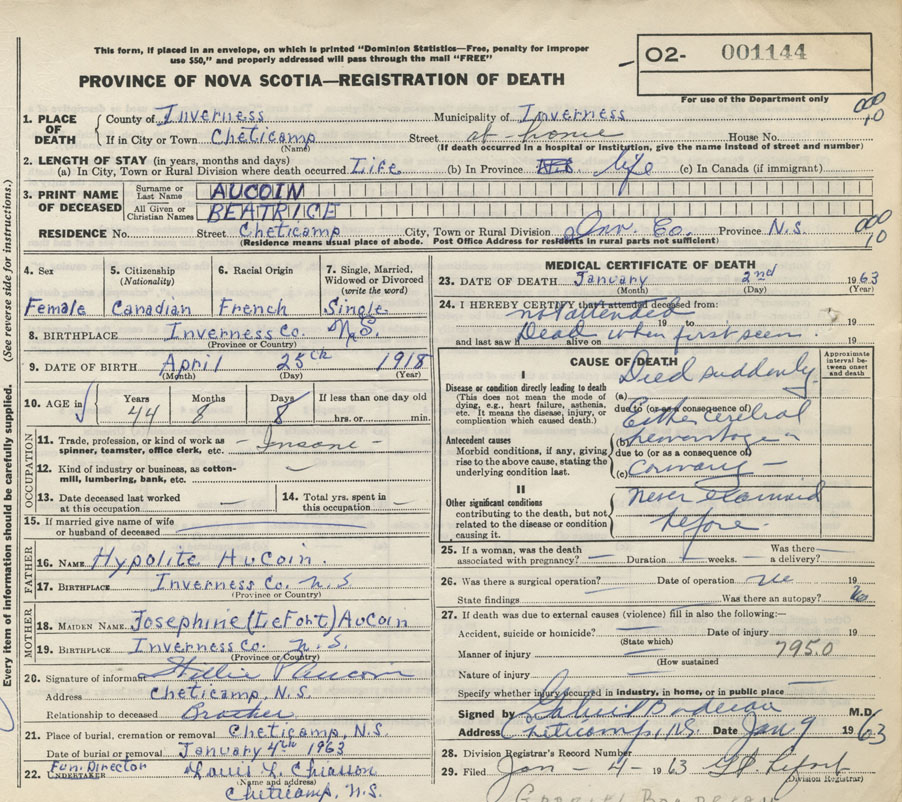 This form, if placed in an envelope, on which is printed "Dominion Statistics—Free, penalty for improper
use $50," and properly addressed will pass through the mail "FREE"
PROVINCE OF NOVA SCOTIA—REGISTRATION OF DEATH
02- 001144
For use of the Department only
1. PLACE OF DEATH
County of Inverness Municipality of Inverness
000
10
If in City or Town Cheticamp Street at home House No.
(Name) (If death occurred in a hospital or institution, give the name instead of street and number)
2. LENGTH OF STAY (in years, months and days)
(a) In City, Town or Rural Division where death occurred Life (b) In Province N.S. life (c) In Canada (if immigrant)
3. PRINT NAME OF DECEASED
Surname or Last Name AUCOIN
All Given or Christian Names BEATRICE
RESIDENCE No. Street Cheticamp City, Town or Rural Division Inv. Co. Province N.S.
000
10
(Residence means usual place of abode. Post Office Address for residents in rural parts not sufficient)
(See reverse side for instructions.)
Every item of information should be carefully supplied.
4. Sex Female
5. Citizenship (Nationality) Canadian
6. Racial Origin French
7. Single, Married, Widowed or Divorced (write the word) Single
8. BIRTHPLACE Inverness Co. N.S.
(Province or Country)
9. DATE OF BIRTH April 25th 1918
(Month) (Day) (Year)
10. AGE in Years 44 Months 8 Days 8 If less than one day old
hrs. or min.
OCCUPATION
11. Trade, profession, or kind of work as spinner, teamster, office clerk, etc. - Insane -
12. Kind of industry or business, as cotton-mill, lumbering, bank, etc. —
13. Date deceased last worked at this occupation —
14. Total yrs. spent in this occupation —
15. If married give name of wife or husband of deceased
FATHER
16. NAME Hypolite AuCoin.
17. BIRTHPLACE Inverness Co. N.S
(Province or Country)
MOTHER
18. MAIDEN NAME Josephine (LeFort) AuCoin
19. BIRTHPLACE Inverness Co. N.S.
(Province or Country)
20. Signature of informant Willie Aucoin
Address Cheticamp, N.S.
Relationship to deceased Brother
21. Place of burial, cremation or removal Cheticamp, N.S
Date of burial or removal January 4th 1963
22. Fun. Director UNDERTAKER Louis L. Chiasson
(Name and address)
Cheticamp, N.S.
MEDICAL CERTIFICATE OF DEATH
23. DATE OF DEATH January 2nd 1963
(Month) (Day) (Year)
24. I HEREBY CERTIFY that I attended deceased from:
not attended 19 to 19
and last saw h alive on Dead when first seen. 19
CAUSE OF DEATH
Approximate interval between onset and death
I
Disease or condition directly leading to death
(This does not mean the mode of dying, e.g., heart failure, asthenia, etc. It means the disease, injury, or complication which caused death.)
(a) Died suddenly
due to (or as a consequence of)
Either cerebral
Antecedent causes
Morbid conditions, if any, giving rise to the above cause, stating the underlying condition last.
(b) hemorrhage or
due to (or as a consequence of)
(c) coronary —
II
Other significant conditions
contributing to the death, but not related to the disease or condition causing it.
never examined
before.
25. If a woman, was the death associated with pregnancy? — Duration — weeks. Was there a delivery? —
26. Was there a surgical operation? — Date of operation 19
State findings Was there an autopsy? No
27. If death was due to external causes (violence) fill in also the following:—
Accident, suicide or homicide? — Date of injury 19
(State which)
Manner of injury — 795.0
(How sustained)
Nature of injury —
Specify whether injury occurred in industry, in home, or in public place —
Signed by Gabriel Boudreau M.D.
Address Cheticamp, N.S. Date Jan 9 1963
28. Division Registrar's Record Number
29. Filed Jan - 4 - 1963
(Division Registrar)